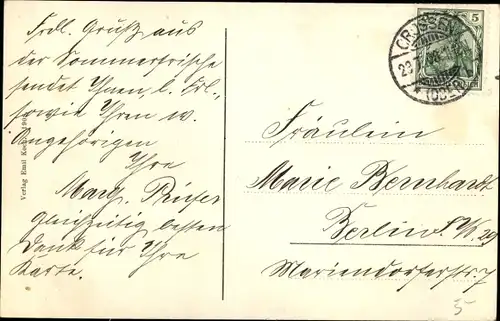 Frdl. Gruß aus
der Sommerfrische
sendet Ihnen, l. Frl.,
sowie Ihren w.
Angehörigen
Ihre
Marg.
Gleichzeitig besten
Dank für Ihre
Karte.
Verlag Emil
CROSSEN
(ODER)
5
Fräulein
Marie Bernhardt
Berlin S.W. 29
Mariendorferstr. 7
5